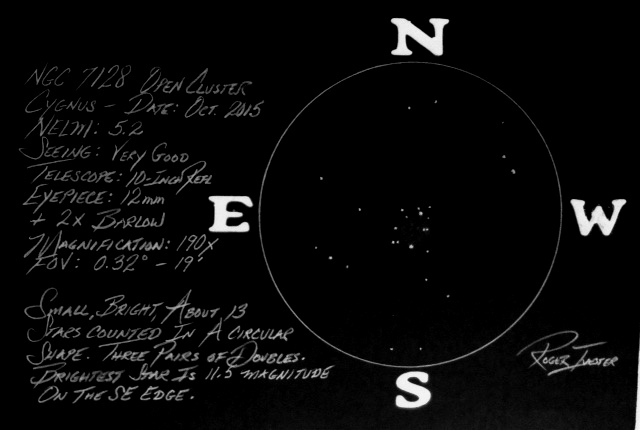 N
NGC 7128 Open Cluster
Cygnus – Date: Oct. 2015
NELM: 5.2
Seeing: Very Good
Telescope: 10-Inch Refl
Eyepiece: 12mm
+ 2x Barlow
Magnification: 190x
FOV: 0.32° – 19'
E
W
Small, Bright, About 13
Stars Counted In A Circular
Shape. Three Pairs of Doubles.
Brightest Star Is 11.5 magnitude
On The SE Edge.
Roger Ivester
S